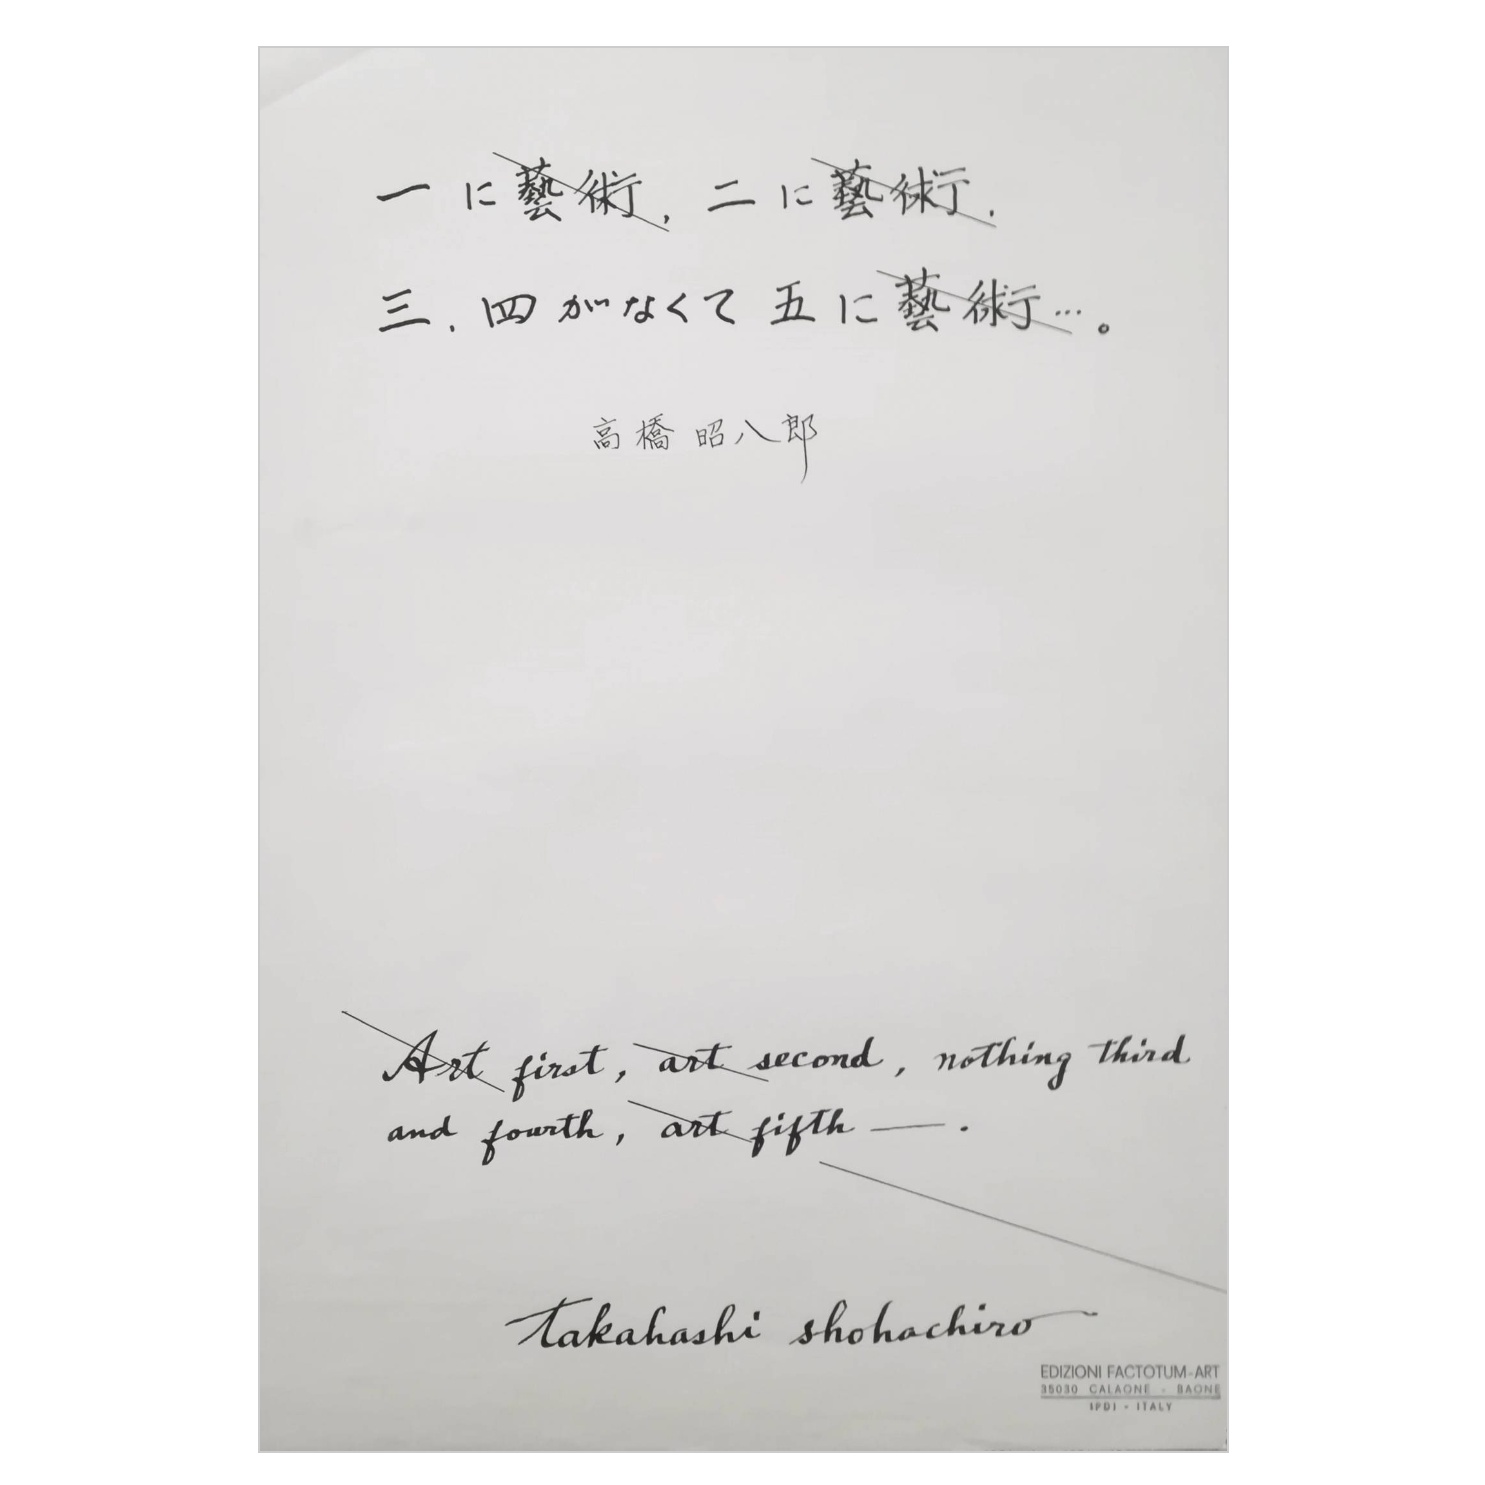 一に藝術, 二に藝術.
三. 四がなくて五に藝術…。
高橋昭八郎
Art first, art second, nothing third
and fourth, art fifth — .
takahashi shohachiro
EDIZIONI FACTOTUM-ART
35030 CALAONE - BAONE
(PD) - ITALY